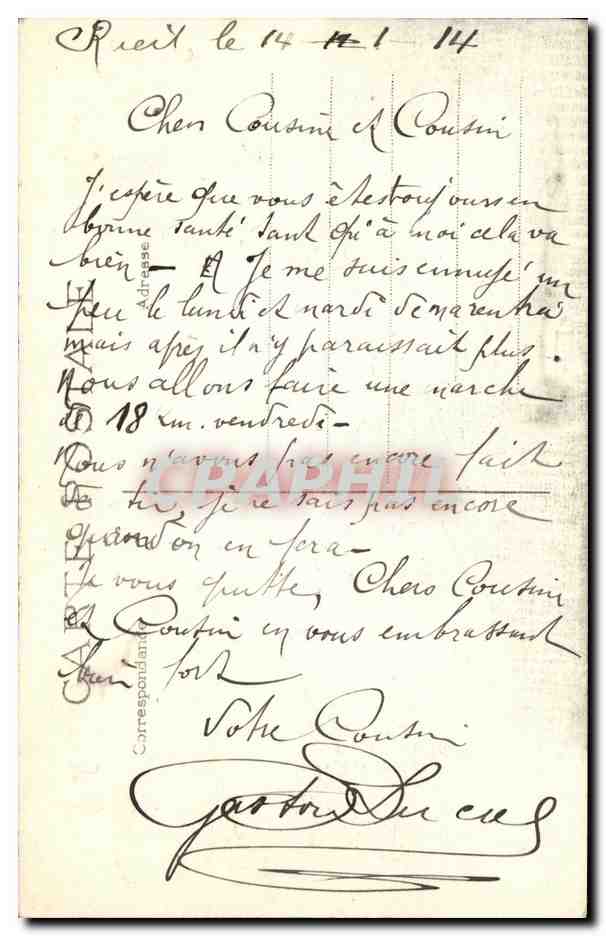 Rueil le 14 - 1 - 14
Chers Cousine et Cousin
J'espère que vous êtes toujours en
bonne santé tant qu'à moi cela va
bien - Je me suis ennuyé un
peu le lundi et mardi de ma rentrée
mais après il n'y paraissait plus.
Nous allons faire une marche
de 18 km. vendredi -
Nous n'avons pas encore fait
de tir, je ne sais pas encore
quand on en fera -
Je vous quitte, Chers Cousine
et Cousin en vous embrassant
bien fort
Votre Cousin
Gaston
CARTE POSTALE
Correspondance
Adresse
CRAPHIL